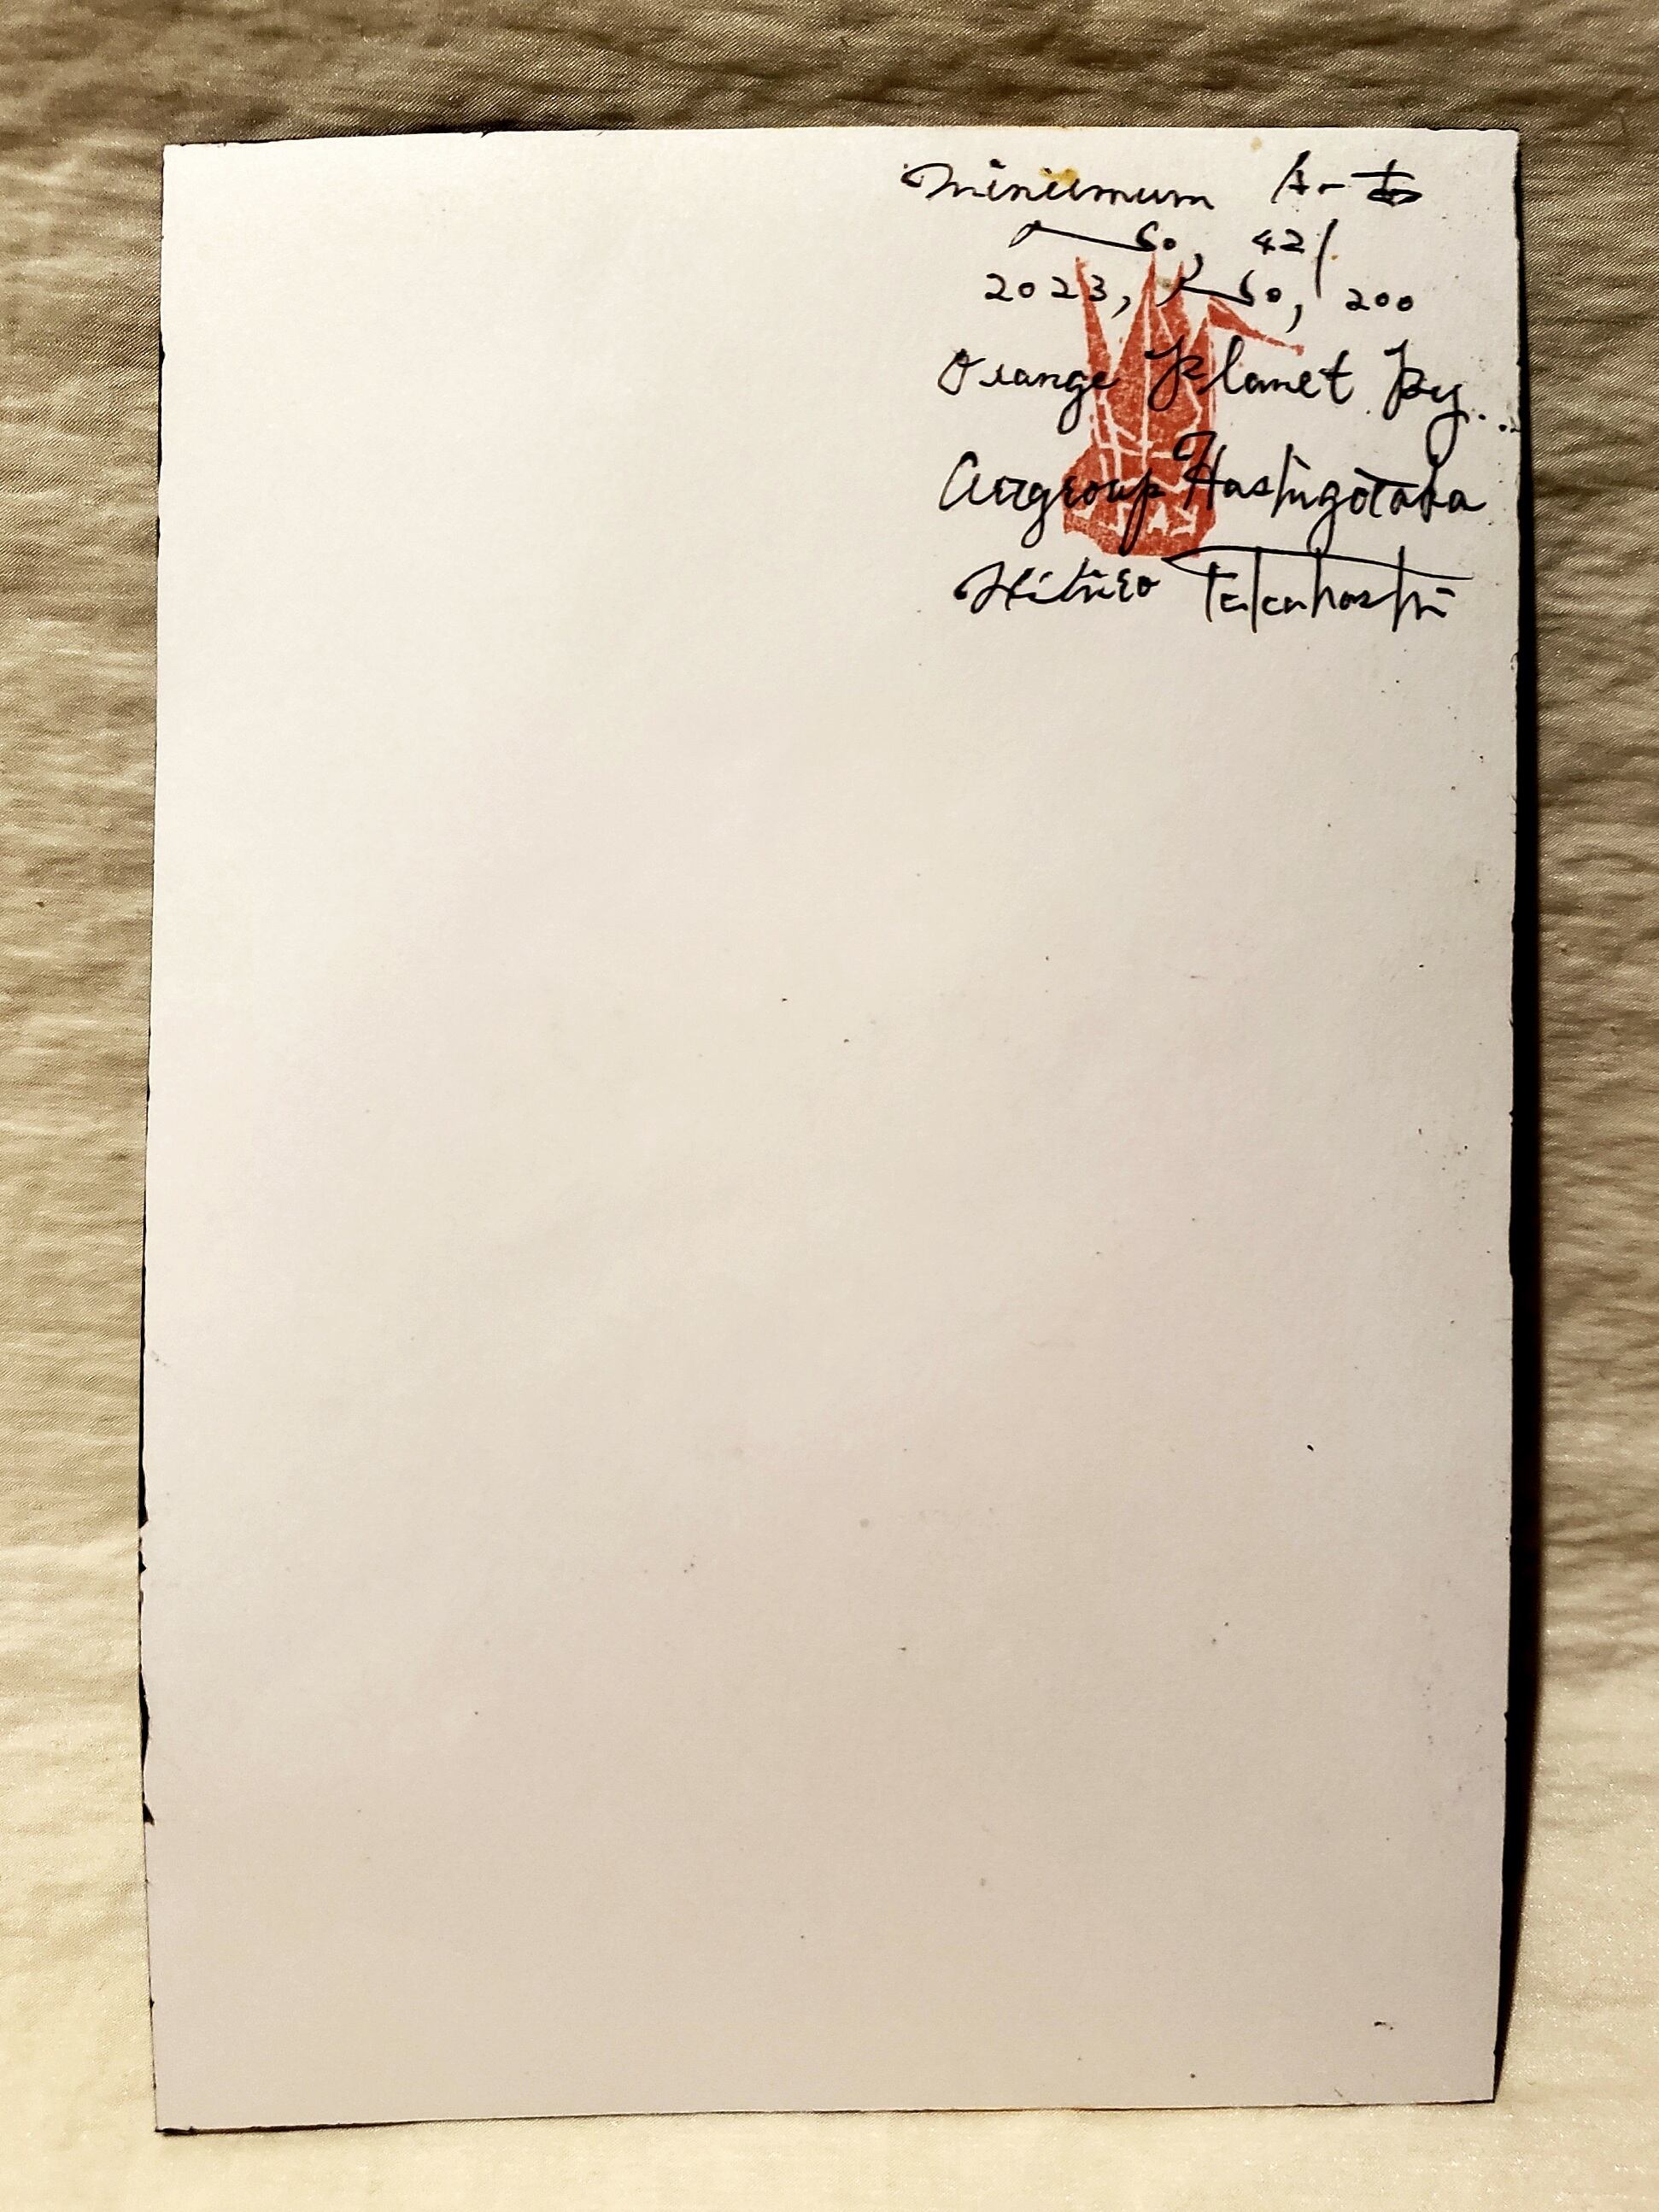 Miniumum
No, 421
2023, No, 200
Orange Planet By...
Airgroup Hashigotaka
Takahashi